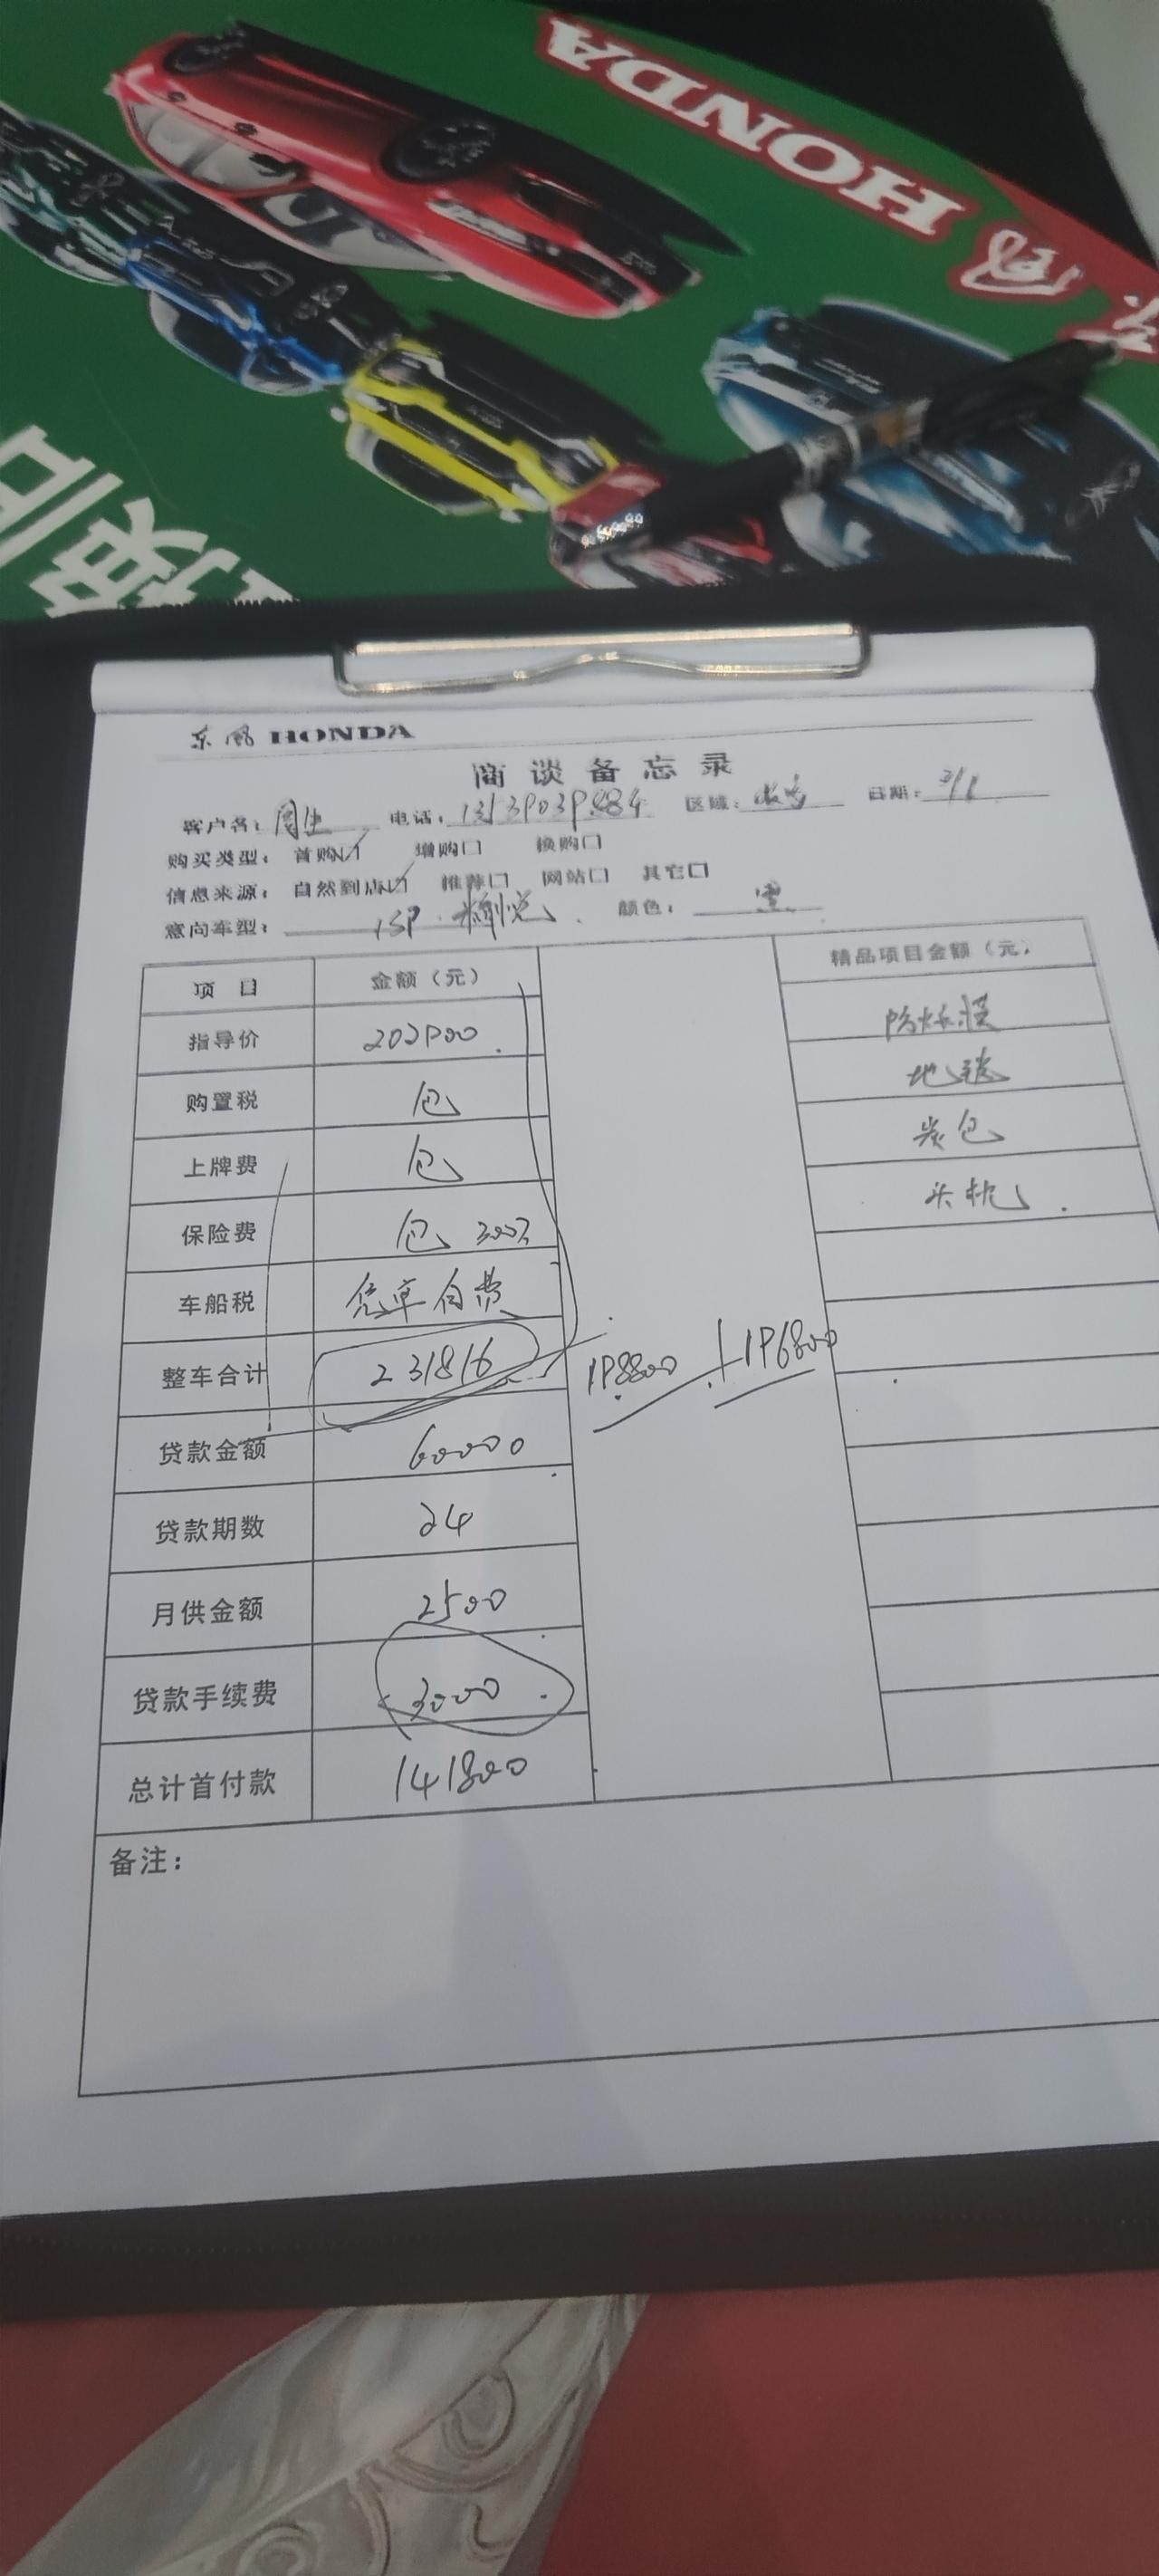 东风 HONDA
东风 HONDA
商谈备忘录
客户名： 周生 电话： 区域： 日期：
购买类型： 首购☑ 增购□ 换购□
信息来源： 自然到店☑ 推荐□ 网站□ 其它□
意向车型： 颜色： 黑
项目 金额（元） 精品项目金额（元）
指导价 202900
购置税 包
上牌费 包
保险费 包 300万
车船税 凭单自费
整车合计 231816 198800 196800
贷款金额 60000
贷款期数 24
月供金额 2500
贷款手续费 3000
总计首付款 141800
防爆膜
地毯
炭包
头枕
备注：